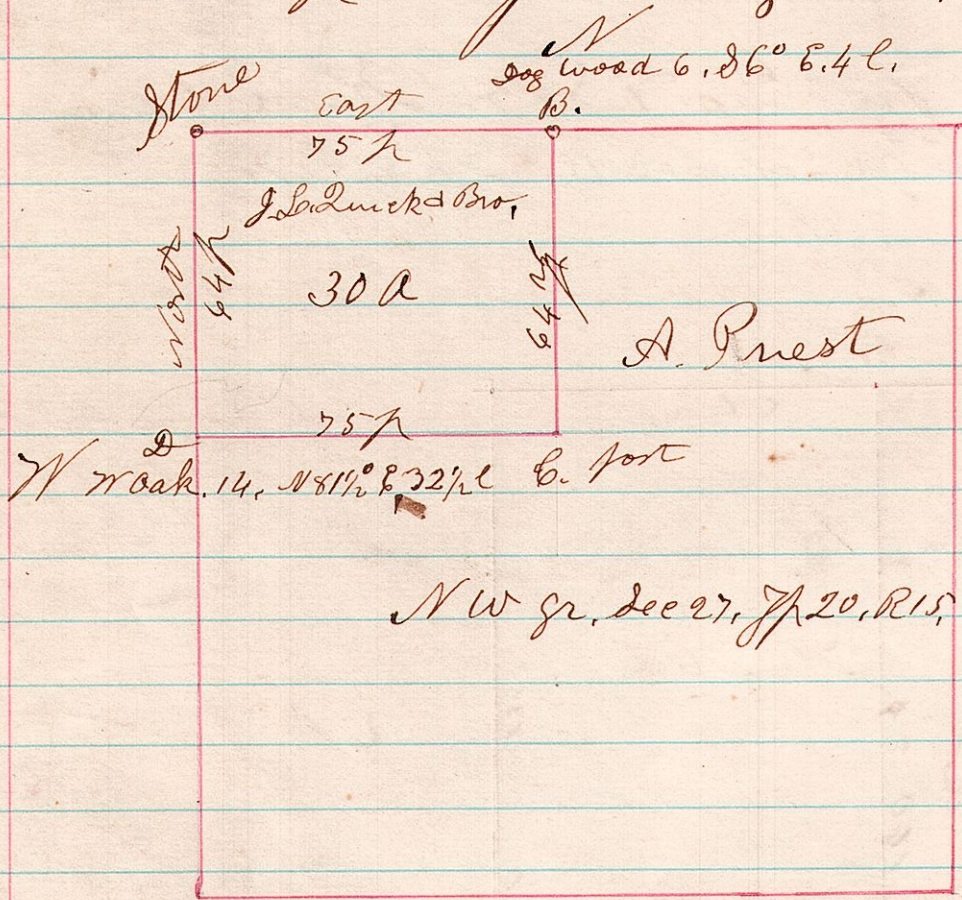 N
Stone
Dog wood 6. S 6° E. 4 l.
B.
East
75 p
J. L. Quick & Bro.
North
64 p
30 A
64 p
A. Priest
75 p
D
W
W oak. 14. N 81½° E 32½ l
C. post
N W qr. Sec 27, Tp 20, R 15,